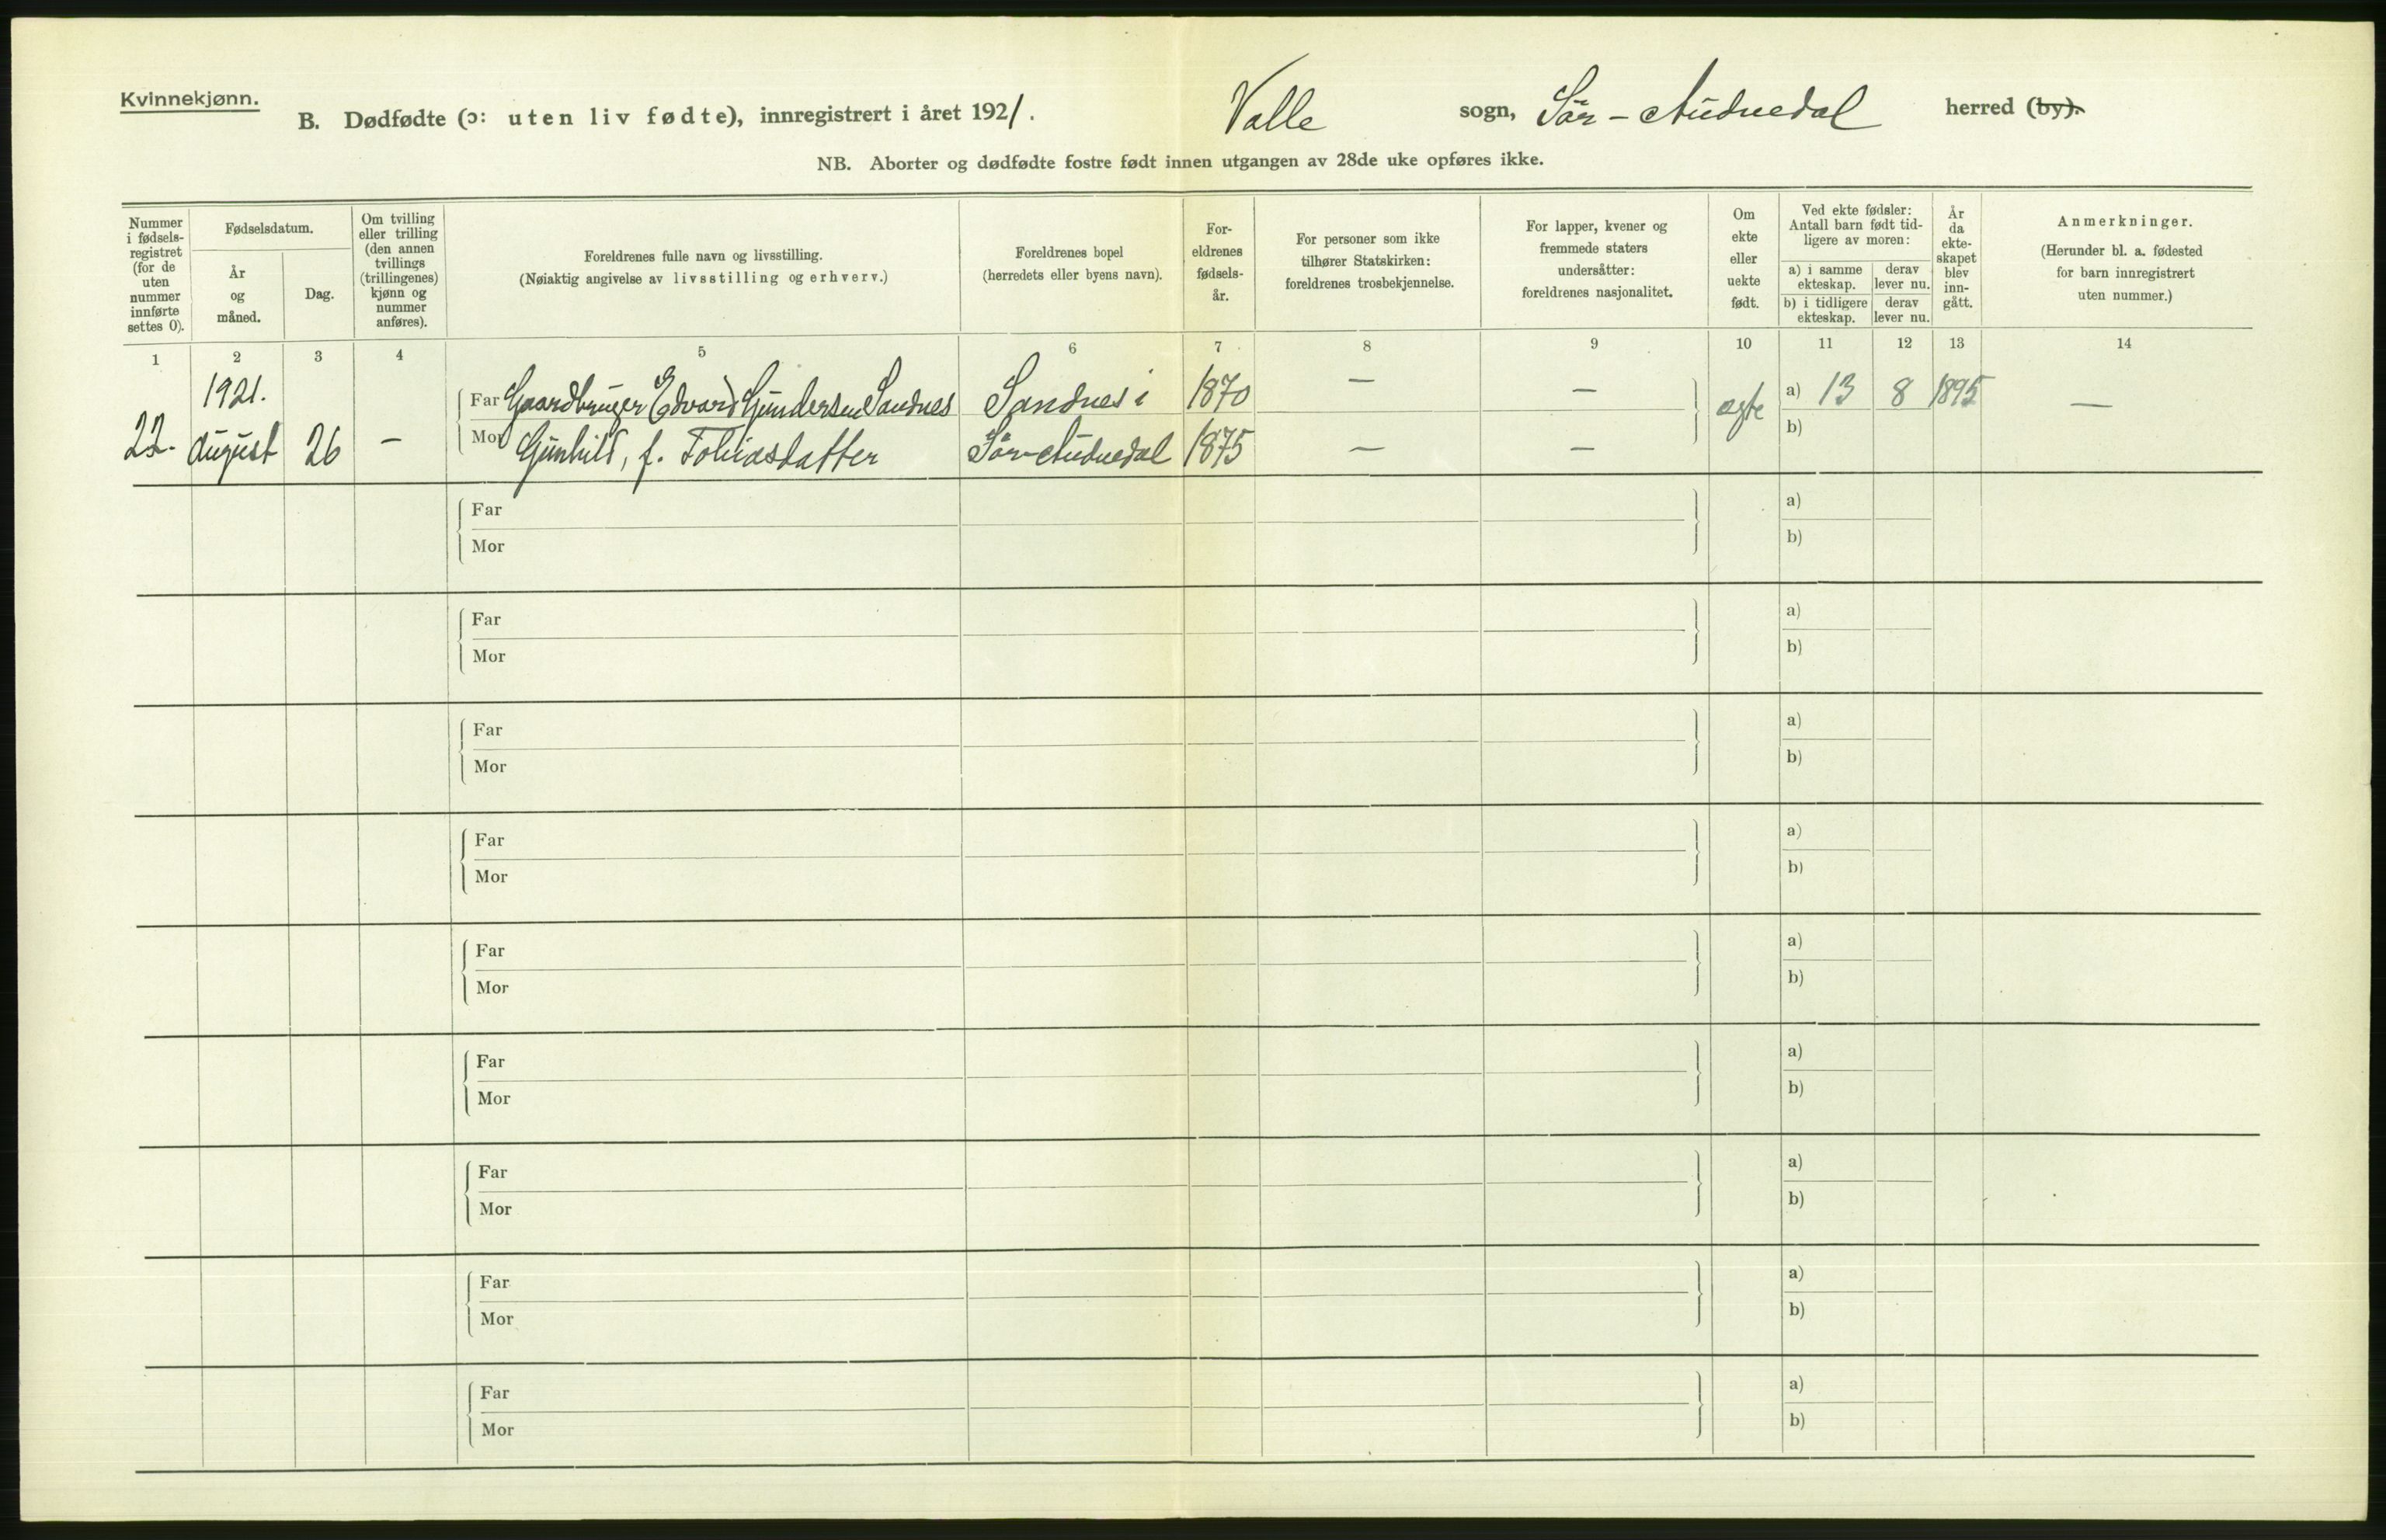 Kvinnekjønn.
B. Dødfødte (ɔ: uten liv fødte), innregistrert i året 1921. Valle sogn, Sør-Audnedal herred (by).
NB. Aborter og dødfødte fostre født innen utgangen av 28de uke opføres ikke.
Nummer i fødsels-registret (for de uten nummer innførte settes 0).
Fødselsdatum.
År og måned.
Dag.
Om tvilling eller trilling (den annen tvillings (trillingenes) kjønn og nummer anføres).
Foreldrenes fulle navn og livsstilling.
(Nøiaktig angivelse av livsstilling og erhverv.)
Foreldrenes bopel
(herredets eller byens navn).
For-eldrenes fødsels-år.
For personer som ikke tilhører Statskirken: foreldrenes trosbekjennelse.
For lapper, kvener og fremmede staters undersåtter: foreldrenes nasjonalitet.
Om ekte eller uekte født.
Ved ekte fødsler: Antall barn født tid-ligere av moren:
a) i samme ekteskap.
derav lever nu.
b) i tidligere ekteskap.
derav lever nu.
År da ekte-skapet blev inn-gått.
Anmerkninger.
(Herunder bl. a. fødested for barn innregistrert uten nummer.)
1 2 3 4 5 6 7 8 9 10 11 12 13 14
1921. Far Gaardbruger Edvard Gundersen Sandnes Sandnes i 1870 — — ægte a) 13 8 1895 —
22. August 26 — Mor Gunhild, f. Tobiasdatter Sør-Audnedal 1875 — — b)
Far a)
Mor b)
Far a)
Mor b)
Far a)
Mor b)
Far a)
Mor b)
Far a)
Mor b)
Far a)
Mor b)
Far a)
Mor b)
Far a)
Mor b)
Far a)
Mor b)